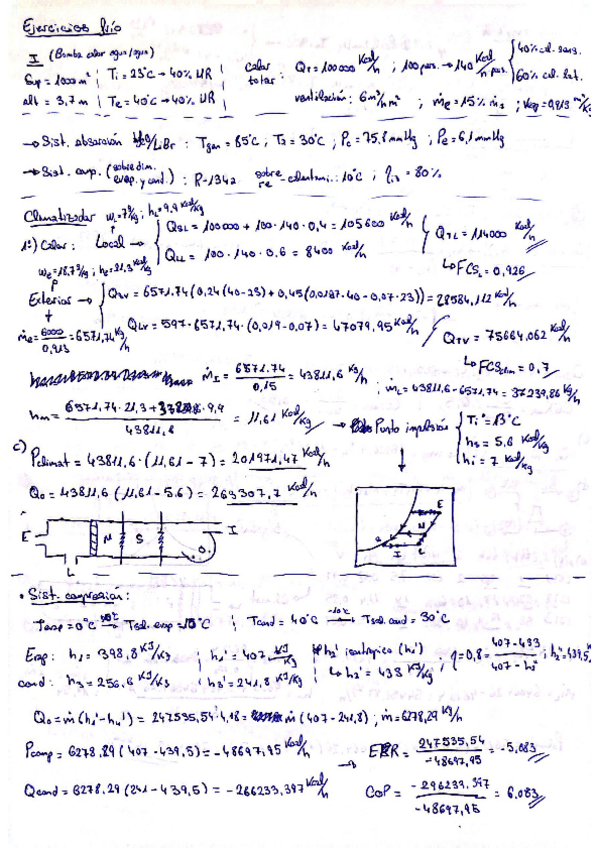 Ejercicios frío
I (Bomba calor agua/agua)
Sup = 1000 m² | Ti = 23°C → 40% UR
alt = 3,7 m | Te = 40°C → 40% UR
Calor total: QT = 100000 Kcal/h ; 100 pers. → 140 Kcal/h pers. { 40% cal. sens. 60% cal. lat.
ventilación: 6 m³/h m² ; ṁe = 15% ṁI ; Veq = 0,913 m³/Kg
→ Sist. absorción H₂O/LiBr : Tgen = 85°C ; T3 = 30°C ; Pc = 75,8 mmHg ; Pe = 6,1 mmHg
→ Sist. comp. (sobredim. evap. y cond.) : R-134a sobre re-calentam.: 10°C ; ηis = 80%
Climatizador wL = 7 g/Kg ; hL = 9,9 Kcal/Kg
1º) Calor : Local → { QSL = 100000 + 100·140·0,4 = 105600 Kcal/h
QLL = 100·140·0.6 = 8400 Kcal/h } QTL = 114000 Kcal/h
↳ FCSL = 0,926
we = 18,7 g/Kg ; he = 21,3 Kcal/Kg
Exterior → { QSV = 6571,74 (0,24 (40-23) + 0,45 (0,0187·40 - 0,07·23)) = 28584,112 Kcal/h
ṁe = 6000/0,913 = 6571,74 Kg/h
QLV = 597·6571,74·(0,019-0,07) = 47079,95 Kcal/h } QTV = 75664,062 Kcal/h
↳ FCSclim = 0,7
ṁI = 6571.74/0,15 = 43811,6 Kg/h ; ṁL = 43811,6 - 6571,74 = 37239,86 Kg/h
hm = (6571,74·21,3 + 37239,86·9,9)/43811,6 = 11,61 Kcal/Kg → Punto impulsión { Ti = 13°C
hs = 5,6 Kcal/Kg
hi = 7 Kcal/Kg
c)
Pclimat = 43811,6·(11,61 - 7) = 201971,47 Kcal/h
Qo = 43811,6 (11,61 - 5.6) = 263307,7 Kcal/h
E M S I
L
E M I L
• Sist. compresión :
Tevap = 0°C → Tsal. evap = 10°C ; Tcond = 40°C →-10°C Tsal. cond = 30°C
Evap : h1 = 398,8 KJ/Kg ; h1' = 407 KJ/Kg ; h2' isentrópico (h2')
↳ h2' = 433 KJ/Kg ; η = 0,8 = (407-433)/(407-h2'') ; h2'' = 439,5 KJ/Kg
cond : h3 = 256,6 KJ/Kg ; h3' = 241,8 KJ/Kg
Qo = ṁ (h1' - h4') = 247535,54·4,18 = ṁ (407 - 241,8) ; ṁ = 6278,29 Kg/h
Pcomp = 6278,29 (407 - 439,5) = -48697,95 Kcal/h → EER = 247535,54/-48697,95 = -5,083
Qcond = 6278.29 (241 - 439,5) = -296233,397 Kcal/h
COP = -296233,397/-48697,95 = 6.083